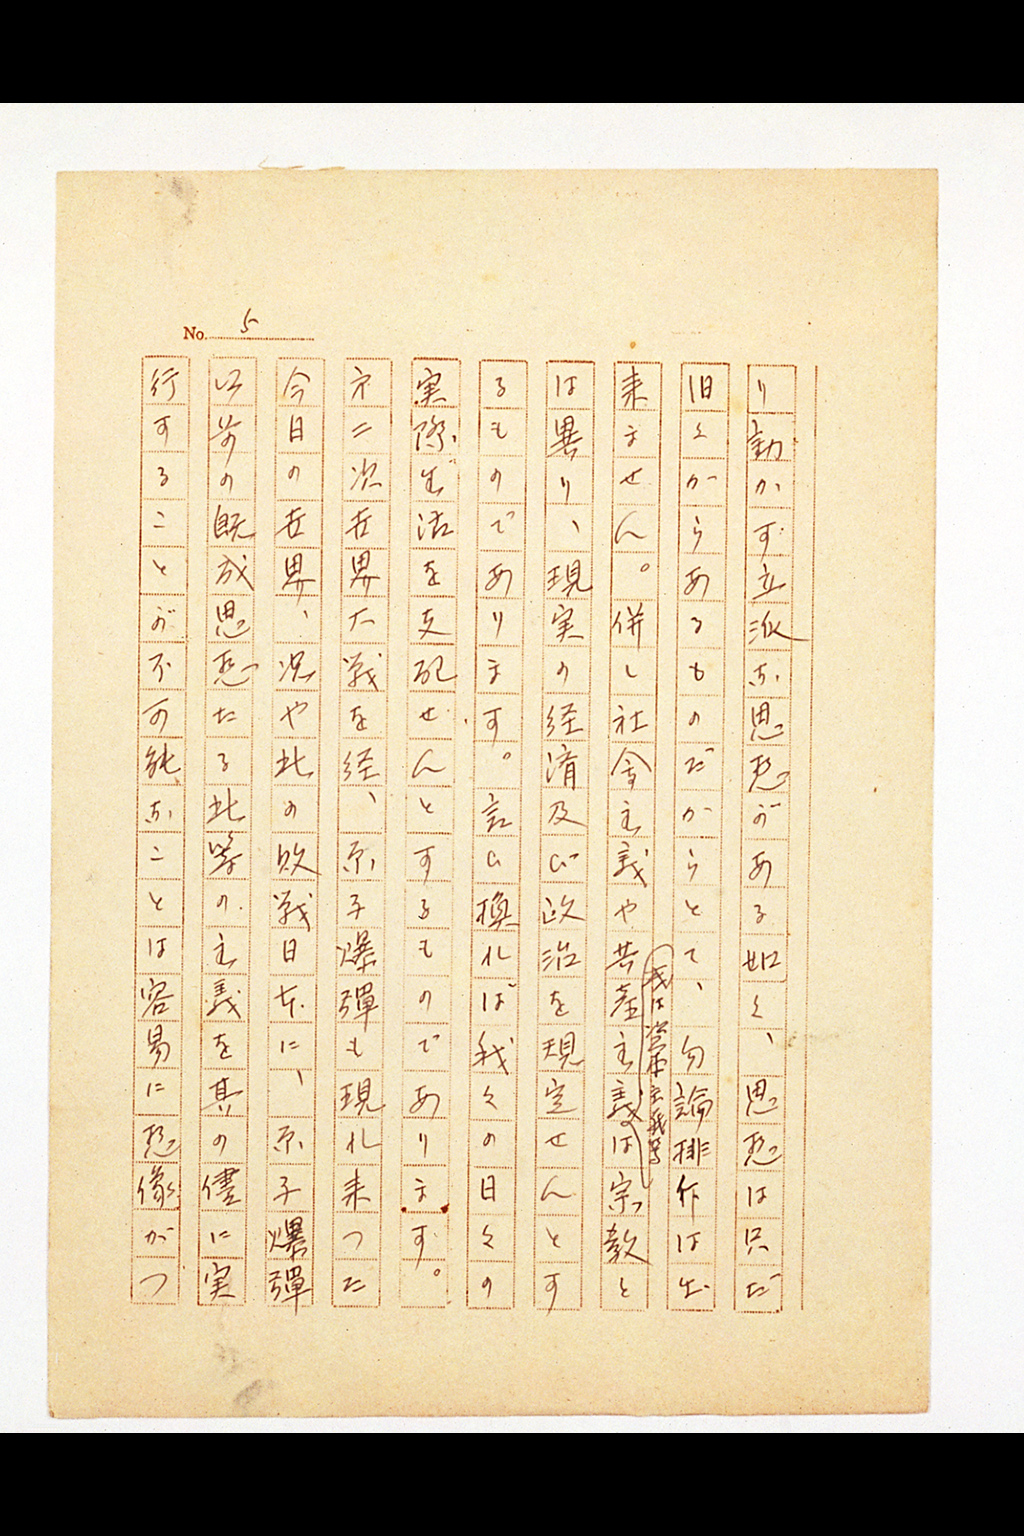 No. 5
り動かす立派な思想がある如く、思想は只だ
旧くからあるものだからとて、勿論排斥は出
来ません。併し社会主義や共産主義は宗教と
或は資本主義等
は異り、現実の経済及び政治を規定せんとす
るものであります。言い換れば我々の日々の
実際生活を支配せんとするものであります。
才二次世界大戦を経、原子爆弾も現れ来つた
今日の世界、况や此の敗戦日本に、原子爆弾
以前の既成思想たる此等の主義を其の儘に実
行することが不可能なことは容易に想像がつ